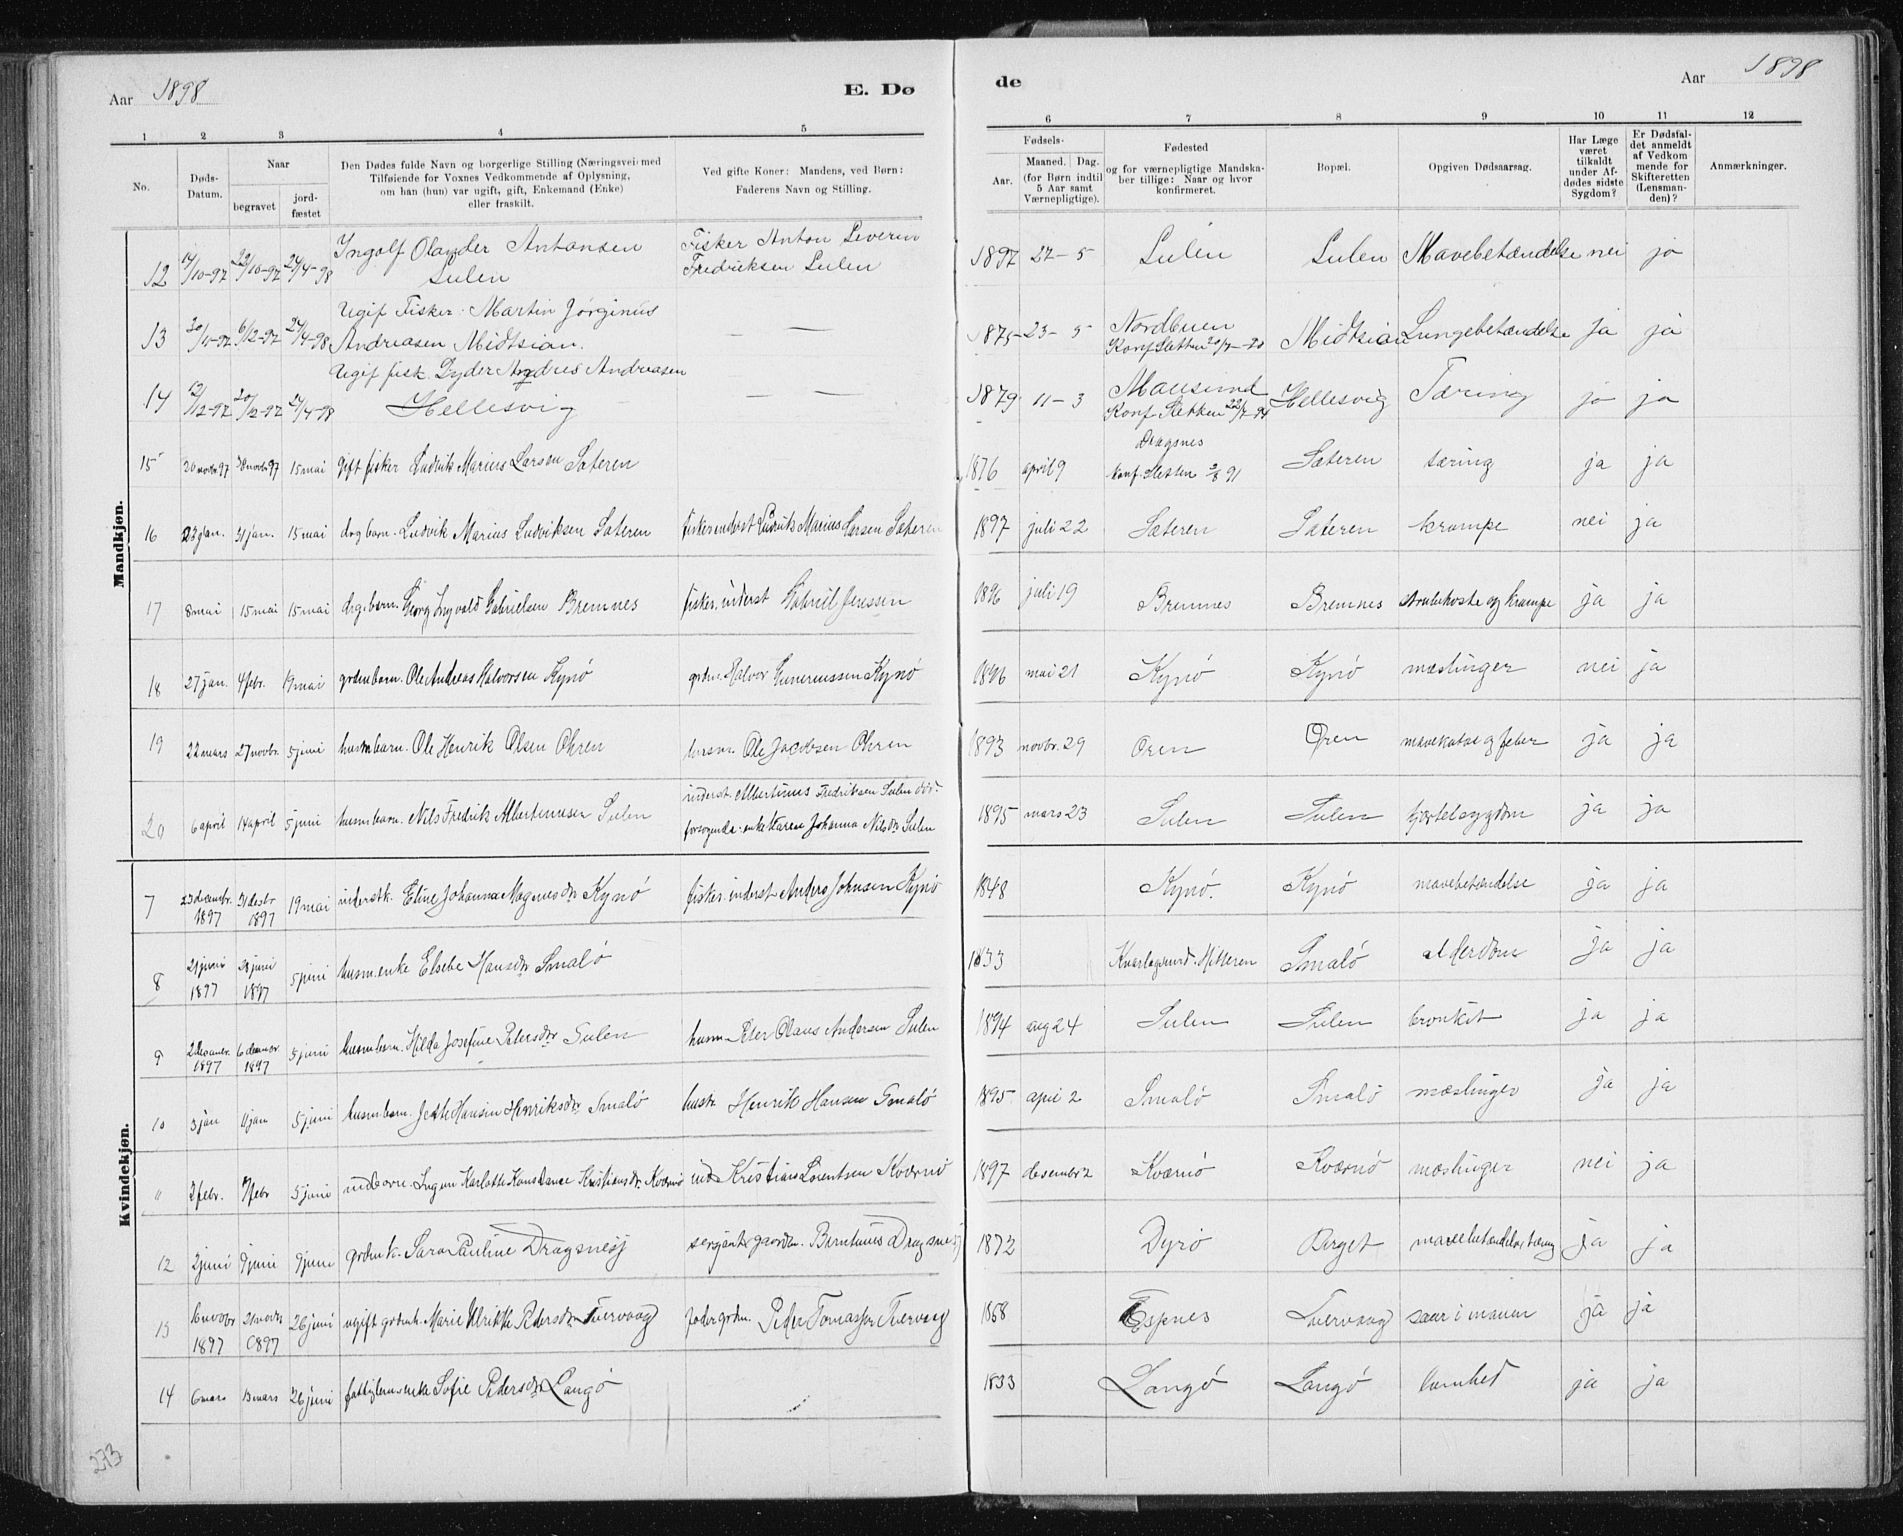 Aar 1898
E. Dø
de
Aar 1898
1 2 3 4 5 6 7 8 9 10 11 12
No.
Døds-Datum.
Naar
begravet
jord-fæstet
Den Dødes fulde Navn og borgerlige Stilling (Næringsvei) med
Tilføiende for Voxnes Vedkommende af Oplysning,
om han (hun) var ugift, gift, Enkemand (Enke)
eller fraskilt.
Ved gifte Koner: Mandens, ved Børn:
Faderens Navn og Stilling.
Fødsels-
Aar.
Maaned. Dag.
(for Børn indtil
5 Aar samt
Værnepligtige).
Fødested
og for værnepligtige Mandska-
ber tillige: Naar og hvor
konfirmeret.
Bopæl.
Opgiven Dødsaarsag.
Har Læge
været
tilkaldt
under Af-
dødes sidste
Sygdom?
Er Dødsfal-
det anmeldt
af Vedkom
mende for
Skifteretten
(Lensman-
den)?
Anmærkninger.
Mandkjøn.
12 17/10-97 22/10-97 24/4-98 Ingolf Olander Antonsen Sulen Fisker Anton Severin Fredriksen Sulen 1897 27-5 Sulen Sulen Mavebetændelse nei ja
13 6/12-97 24/4-98 Ugif Fisker. Martin Jørginus Andreasen Midtsian. — — 1875 23-5 Nordbuen Konf Sletten Midtsian Lungebetændelse ja ja
14 12/12-97 20/12-97 24/4-98 Ugif fisk. Dyder Andreas Andreasen Hellesvig — — 1879 11-3 Mausund Konf Sletten Hellesvig Tæring ja ja
15 20 novbr 97 30 novbr 97 15 mai gift fisker Ludvik Marius Larsen Sæteren 1876 april 9 Dragsnes konf. Sletten 91 Sæteren tæring ja ja
16 23 jan. 31 jan. 15 mai drg barn. Ludvik Marius Ludviksen Sæteren fisker inderst Ludvik Marius Larsen Sæteren 1897 juli 22 Sæteren Sæteren krampe nei ja
17 8 mai 15 mai 15 mai drg. barn. Georg Ingvald Gabrielsen Bremnes fisker. inderst Gabriel Jenssen 1896 juli 19 Bremnes Bremnes strubehoste og krampe ja ja
18 27 jan. 4 febr. 19 mai grdm barn. Ole Andreas Halvorsen Kynø grdm. Halvor Gunerussen Kynø 1896 mai 21 Kynø Kynø mæslinger nei ja
19 22 mars 27 novbr. 5 juni husm barn. Ole Henrik Olsen Ohren husm. Ole Jacobsen Ohren 1893 novbr. 29 Oren Oren mavekatar og feber ja ja
20 6 april 14 april 5 juni husm barn. Nils Fredrik Albertinusen Sulen inderst. Albertinus Fredriksen Sulen død. forsørgende: enke Karen Johanna Nilsdtr Sulen 1895 mars 23 Sulen Sulen kjertelsygdom ja ja
Kvindekjøn.
7 23 decembr. 1897 31 desbr 1897 19 mai inderstk. Eline Johanna Magnusdtr Kynø fisker. inderst Anders Johnsen Kynø 1848 Kynø. Kynø mavebetændelse ja ja
8 21 juni 1897 28 juni 1897 5 juni husm. enke Elsebe Hansdtr Smalø 1833 Hitteren Smalø alderdom ja ja
9 2 decembr. 1897 6 decembr 1897 5 juni husm barn. Hilda Josefine Petersdtr Sulen husm Peter Olaus Andersen Sulen 1894 aug 24 Sulen Sulen bronkit ja ja
10 3 jan 11 jan 5 juni husm barn. Hansin Henriksdtr. Smalø husm. Henrik Hansen Smalø 1895 april 2 Smalø Smalø mæslinger ja ja
11 2 febr. 7 febr 5 juni indbarn. Karlotte Konstance Kristiansdtr. Kværnø ind Kristian Lorentsen Kværnø 1897 desember 2 Kværnø Kværnø mæslinger nei ja
12 2 juni 9 juni 9 juni grdmk. Sara Pauline Dragsnesøj sergiant gaardm. Berntinus Dragsnesøj 1872 Dyrø Berget mavebetændelse tæring ja ja
13 16 novbr 1897 21 novbr 1897 26 juni ugift grdmk. Marie Ulrikke Pedersdtr Tvervaag fader grdm. Peder Tomassen Tvervaag 1868 Espnes Tvervaag saar i maven ja ja
14 6 mars 13 mars 26 juni fattiglemsenke Sofie Pedersdtr Langø 1833 Langø Langø lamhed ja ja
273